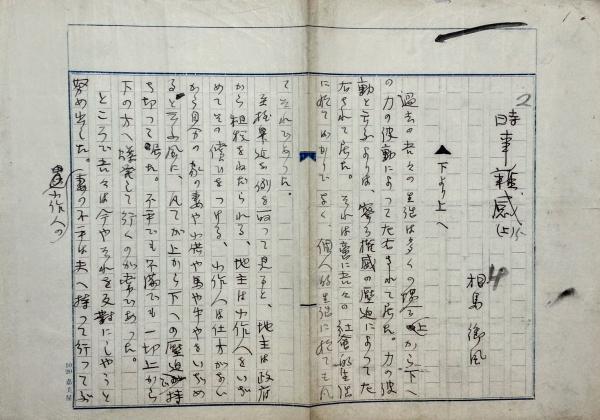 時事雑感(上)
相馬御風
▲下より上へ
過去の吾々の生活は多くの場合上から下へ
の力の波動によつて左右されて居た。力の波
動と云ふよりは、寧ろ権威の圧迫によつて左
右されて居た。それは啻に吾々の社会的生活
に於てばかりでなく、個人的生活に於ても凡
てそれであつた。
至極卑近な例を取つて見ると、地主は政府
から租税をねだられる、地主は小作人をいぢ
めてその償ひをつける、小作人は仕方がない
から自分の家の妻や小供や馬や牛やをいぢめ
ると云ふ風に、凡てが上から下への圧迫で持
ち切つて居た。不平でも不満でも一切上から
下の方へ爆発して行くのが常であつた。
ところで吾々は今やそれを反対にしやうと
努め出した。妻の不平は夫へ持つて行つてぶ
小作人の